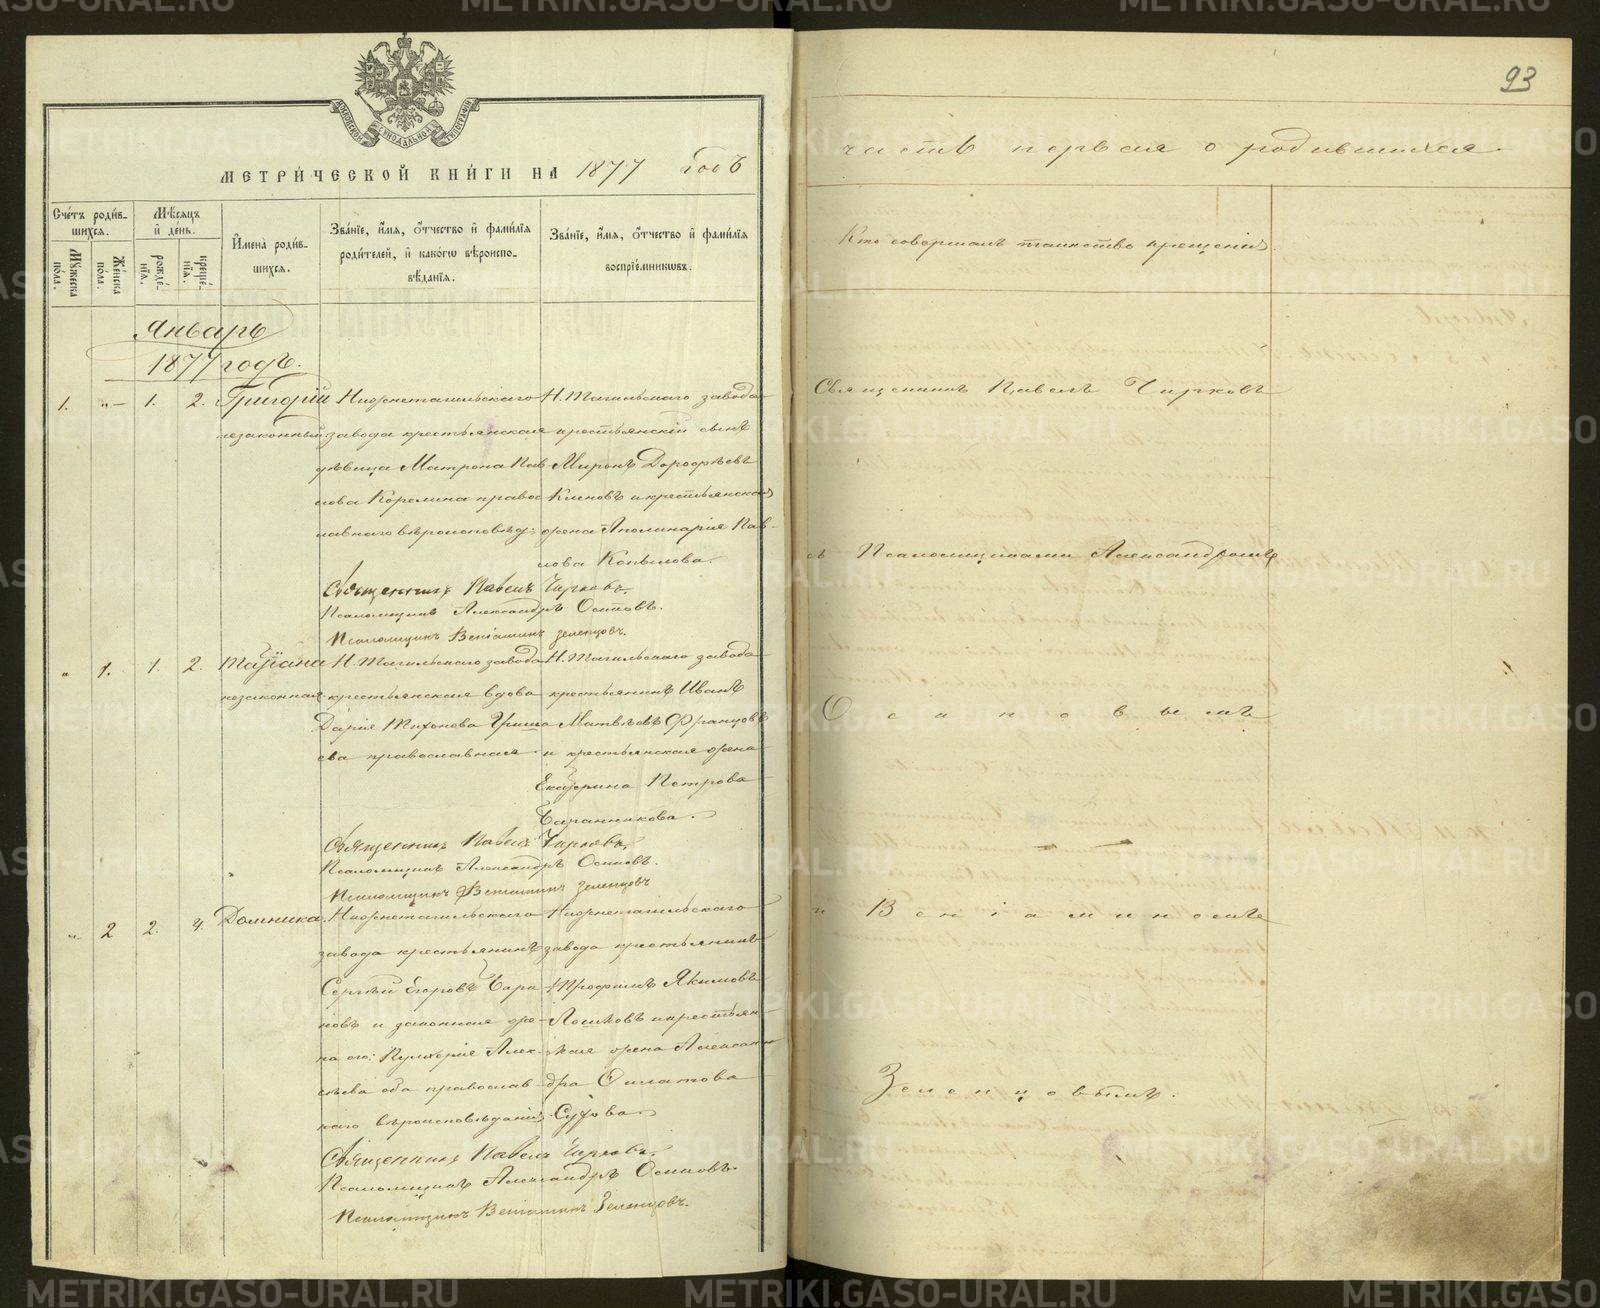 МОСКОВСКОЙ СѴНОДАЛЬНОЙ ТИПОГРАФІИ
МЕТРИ́ЧЕСКОЙ КНИ́ГИ НА 1877 годъ
Сче́тъ роди́в-
шихся.
Мѣ́сяцъ
и҆ де́нь.
И҆мена̀ роди́в-
шихся.
Зва́нїе, и҆́мя, ѻ҆́тчество и҆ фами́лїя
роди́телей, и҆ како́гѡ вѣроиспо-
вѣ́данїя.
Зва́нїе, и҆́мя, ѻ҆́тчество и҆ фами́лїя
воспрїе́мникѡвъ.
Мꙋ́жеска
по́ла.
Же́нска
по́ла.
рожде́-
нїя.
креще́-
нїя.
Январь
1877 годъ.
1. „— 1. 2. Григорій
незаконный
Нижнетагильскаго
завода крестьянская
дѣвица Матрона Пав
лова Корелина правос
лавнаго вѣроисповѣд:
Н. Тагильскаго завода
крестьянскій сынъ
Миронъ Дорофѣевъ
Кленовъ и крестьянская
жена Аполинарія Пав-
лова Копылова.
Священникъ Павелъ Чирковъ.
Псаломщикъ Александръ Осиповъ.
Псаломщикъ Веніаминъ Зеленцовъ.
„ 1. 1. 2. Татіана
незаконная
Н. Тагильскаго завода
крестьянская вдова
Дарія Тихонова
ева православная
Н. Тагильскаго завода
крестьянинъ Иванъ
Матвѣевъ Францовъ
и крестьянская жена
Екатерина Петрова
Баранникова.
Священникъ Павелъ Чирковъ.
Псаломщикъ Александръ Осиповъ.
Псаломщикъ Веніаминъ Зеленцовъ
„ 2 2. 4. Домника.
Нижнетагильскаго
завода крестьянинъ
Сергѣй Егоровъ Бара
новъ и законная же-
на его: Пульхерія Алек-
сѣева оба православ
наго вѣроисповѣданія
Нижнетагильскаго
завода крестьянинъ
Трофимъ Якимовъ
Ложковъ и крестьян-
ская жена Алексан
дра Филатова
Сухова.
Священникъ Павелъ Чирковъ.
Псаломщикъ Александръ Осиповъ.
Псаломщикъ Веніаминъ Зеленцовъ.
93
часть первая о родившихся.
Кто совершалъ таинство крещенія.
Священникъ Павелъ Чирковъ
съ Псаломщиками Александромъ
Осиповымъ
и Веніаминомъ
Зеленцовымъ.
METRIKI.GASO-URAL.RU